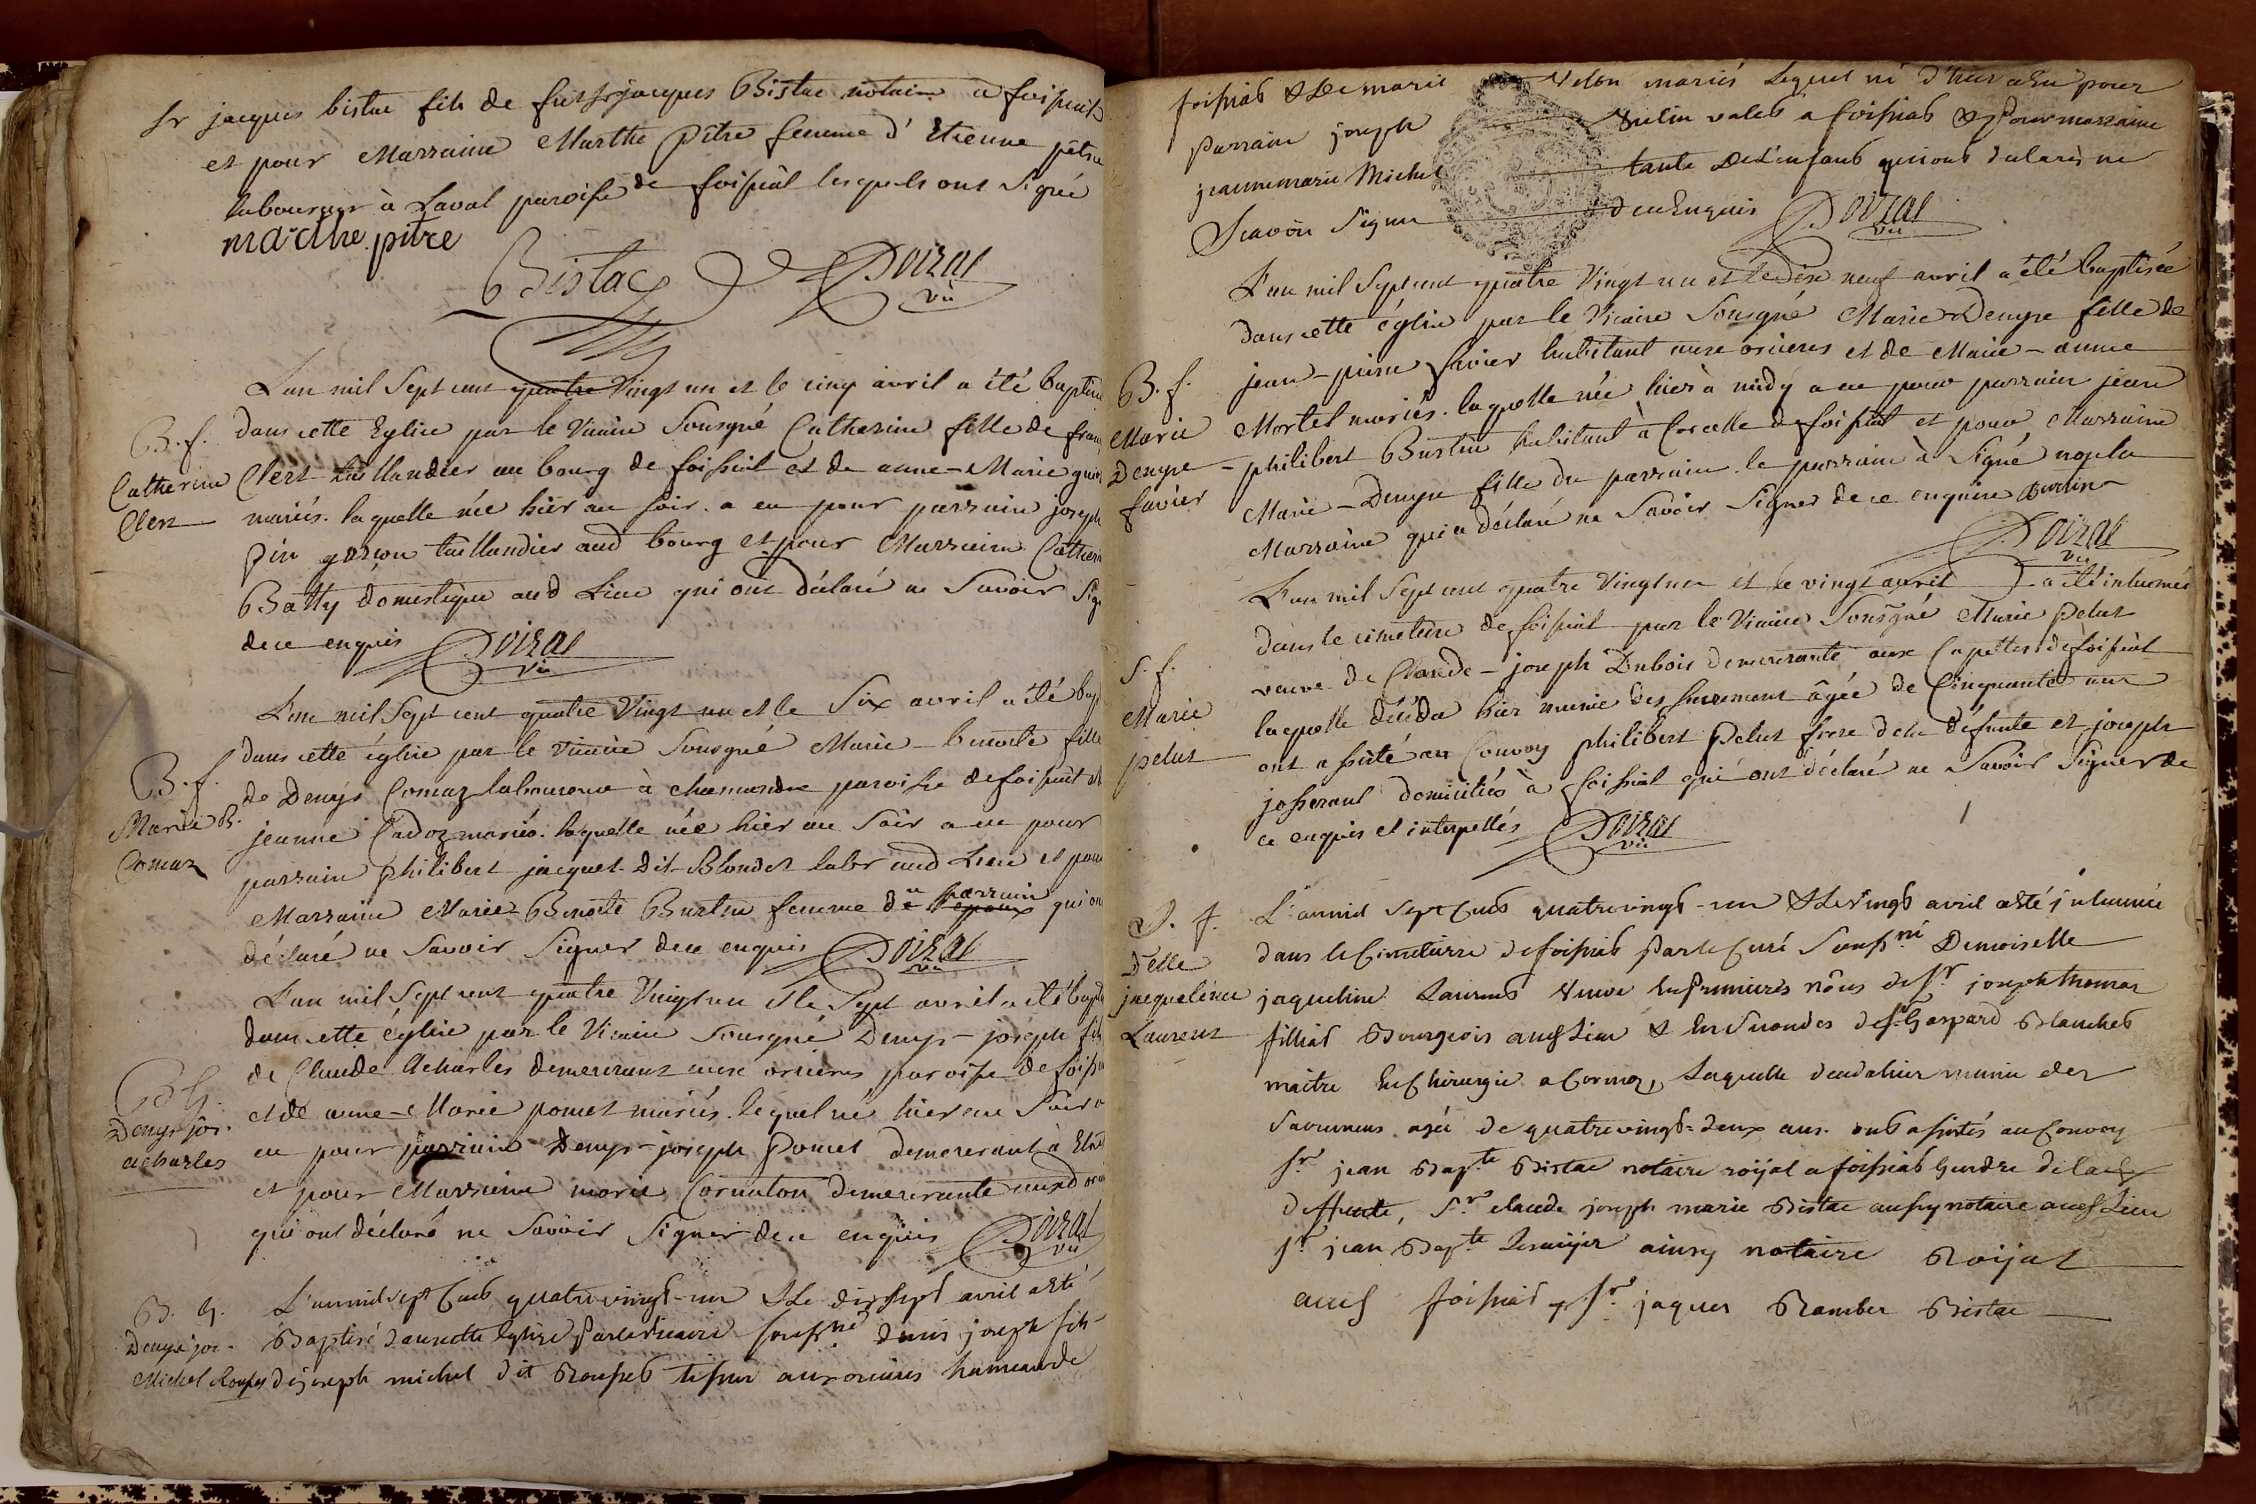 Sr jacques bistac fils de feu Sr jacques Bistac notaire a foissiat
et pour Marraine Marthe pitre femme d'Etienne pitre
laboureur à Laval paroisse de foissiat lesquels ont signé
marthe pitre
Bistac Doirat
vic
L'an mil sept cent quatre vingt un et le cinq avril a été baptisé
B. f. dans cette Eglise par le Vicaire Sousigné Catherine fille de fran
Catherine Clerz taillandier au bourg de foissiat et de anne-Marie
Clerz mariés. laquelle née hier au soir. a eu pour parrain joseph
garçon taillandier aud bourg et pour Marraine Cather
Batty domestique aud Lieu qui ont déclaré ne Savoir Sig
de ce enquis Doirat
vic
L'an mil sept cent quatre vingt un et le Six avril a été bap
dans cette église par le vicaire Sousigné Marie-benoite fille
B. f. de Denys Cormaz laboureur à chamandre paroisse de foissiat et
Marie B. jeanne Cadoz mariés. laquelle née hier au Soir a eu pour
Cormaz parrain philibert jacquet dit Blondet labr aud Lieu et pour
Marraine Marie Benoite Burtin femme du parrain qui on
déclaré ne Savoir Signer de ce enquis Doirat
vic
L'an mil sept cent quatre Vingt un et le Sept avril a été bapt
dans cette église par le Vicaire Sousigné Denys-joseph fil
de Claude Acharles demeurant aux orcieres paroisse de foiss
B. G. et de anne-Marie pomet mariés. lequel né hier au Soir a
Denys jos. eu pour parrain Denys-joseph Pomet demeurant à
acharles et pour Marraine marie Cornaton demeurante
qui ont déclaré ne Savoir Signer de ce enquis Doirat
vic
B. G. L'an mil sept Cent quatre vingt-un & Le dix sept avril a eté
Denys jos- Baptisé dans cette Eglise Par le vicaire souss.né denis joseph fils
Michel Rousset de joseph michel dit Rousset tissier aux orcieres hameau de
foissiat & De marie Velon mariés Lequel né d'hier a Eu pour
Parrain joseph Vulin valet a foissiat & Pour marraine
jeanne marie Michel tante De L'enfant qui ont declarés ne
Scavoir Signer de ce Enquis Doirat
vic
L'an mil Sept cent quatre Vingt un et le dix neuf avril a été baptisée
dans cette église par le Vicaire Sousigné Marie Denyse fille de
B. f. jean-pierre favier habitant aux orcieres et de Marie-anne
Marie Mortel mariés. laquelle née hier à midy a eu pour parrain jean
Denyse philibert Burtin habitant à Corcelle de foissiat et pour Marraine
favier Marie-Denyse fille du parrain. le parrain à Signé non la
Marraine qui a déclaré ne Savoir Signer de ce enquise Burtin
Doirat
vic
L'an mil Sept cent quatre Vingt un et le vingt avril a été inhumée
dans le cimetiere de foissiat par le Vicaire Sousigné Marie pelus
S. f. veuve de Claude-joseph Dubois demeurante aux Capettes de foissiat
Marie laquelle décéda hier munie des sacremens âgée de Cinquante ans
pelus ont assisté au Convoy philibert Pelus frere de la défunte et joseph
josserand domiciliés à foissiat qui ont déclaré ne Savoir Signer de
ce enquis et interpellés Doirat
vic
S. f. L'an mil sept Cent quatre vingt-un & Le vingt avril a eté inhumée
Delle dans le Cimetierre de foissiat Par le Curé Souss.né Demoiselle
jacqueline jaqueline Laurent Veuve En Premieres nôces de Sr joseph thomas
Laurent filliat Bourgeois aud Lieu & En Secondes de Sr Gaspard Blanchet
maitre En Chirurgie a Cormoz, Laquelle deceda hier munie des
Sacremens agée de quatre vingt-deux ans. ont assistés au Convoy
Sr jean Bapte Bistac notaire roïjal a foissiat Gendre de lad
deffunte, Sr claude joseph marie Bistac aussy notaire aud Lieu
Sr jean Bapte aussy notaire Roijal
aud foissiat & Sr jaques Rambert Bistac